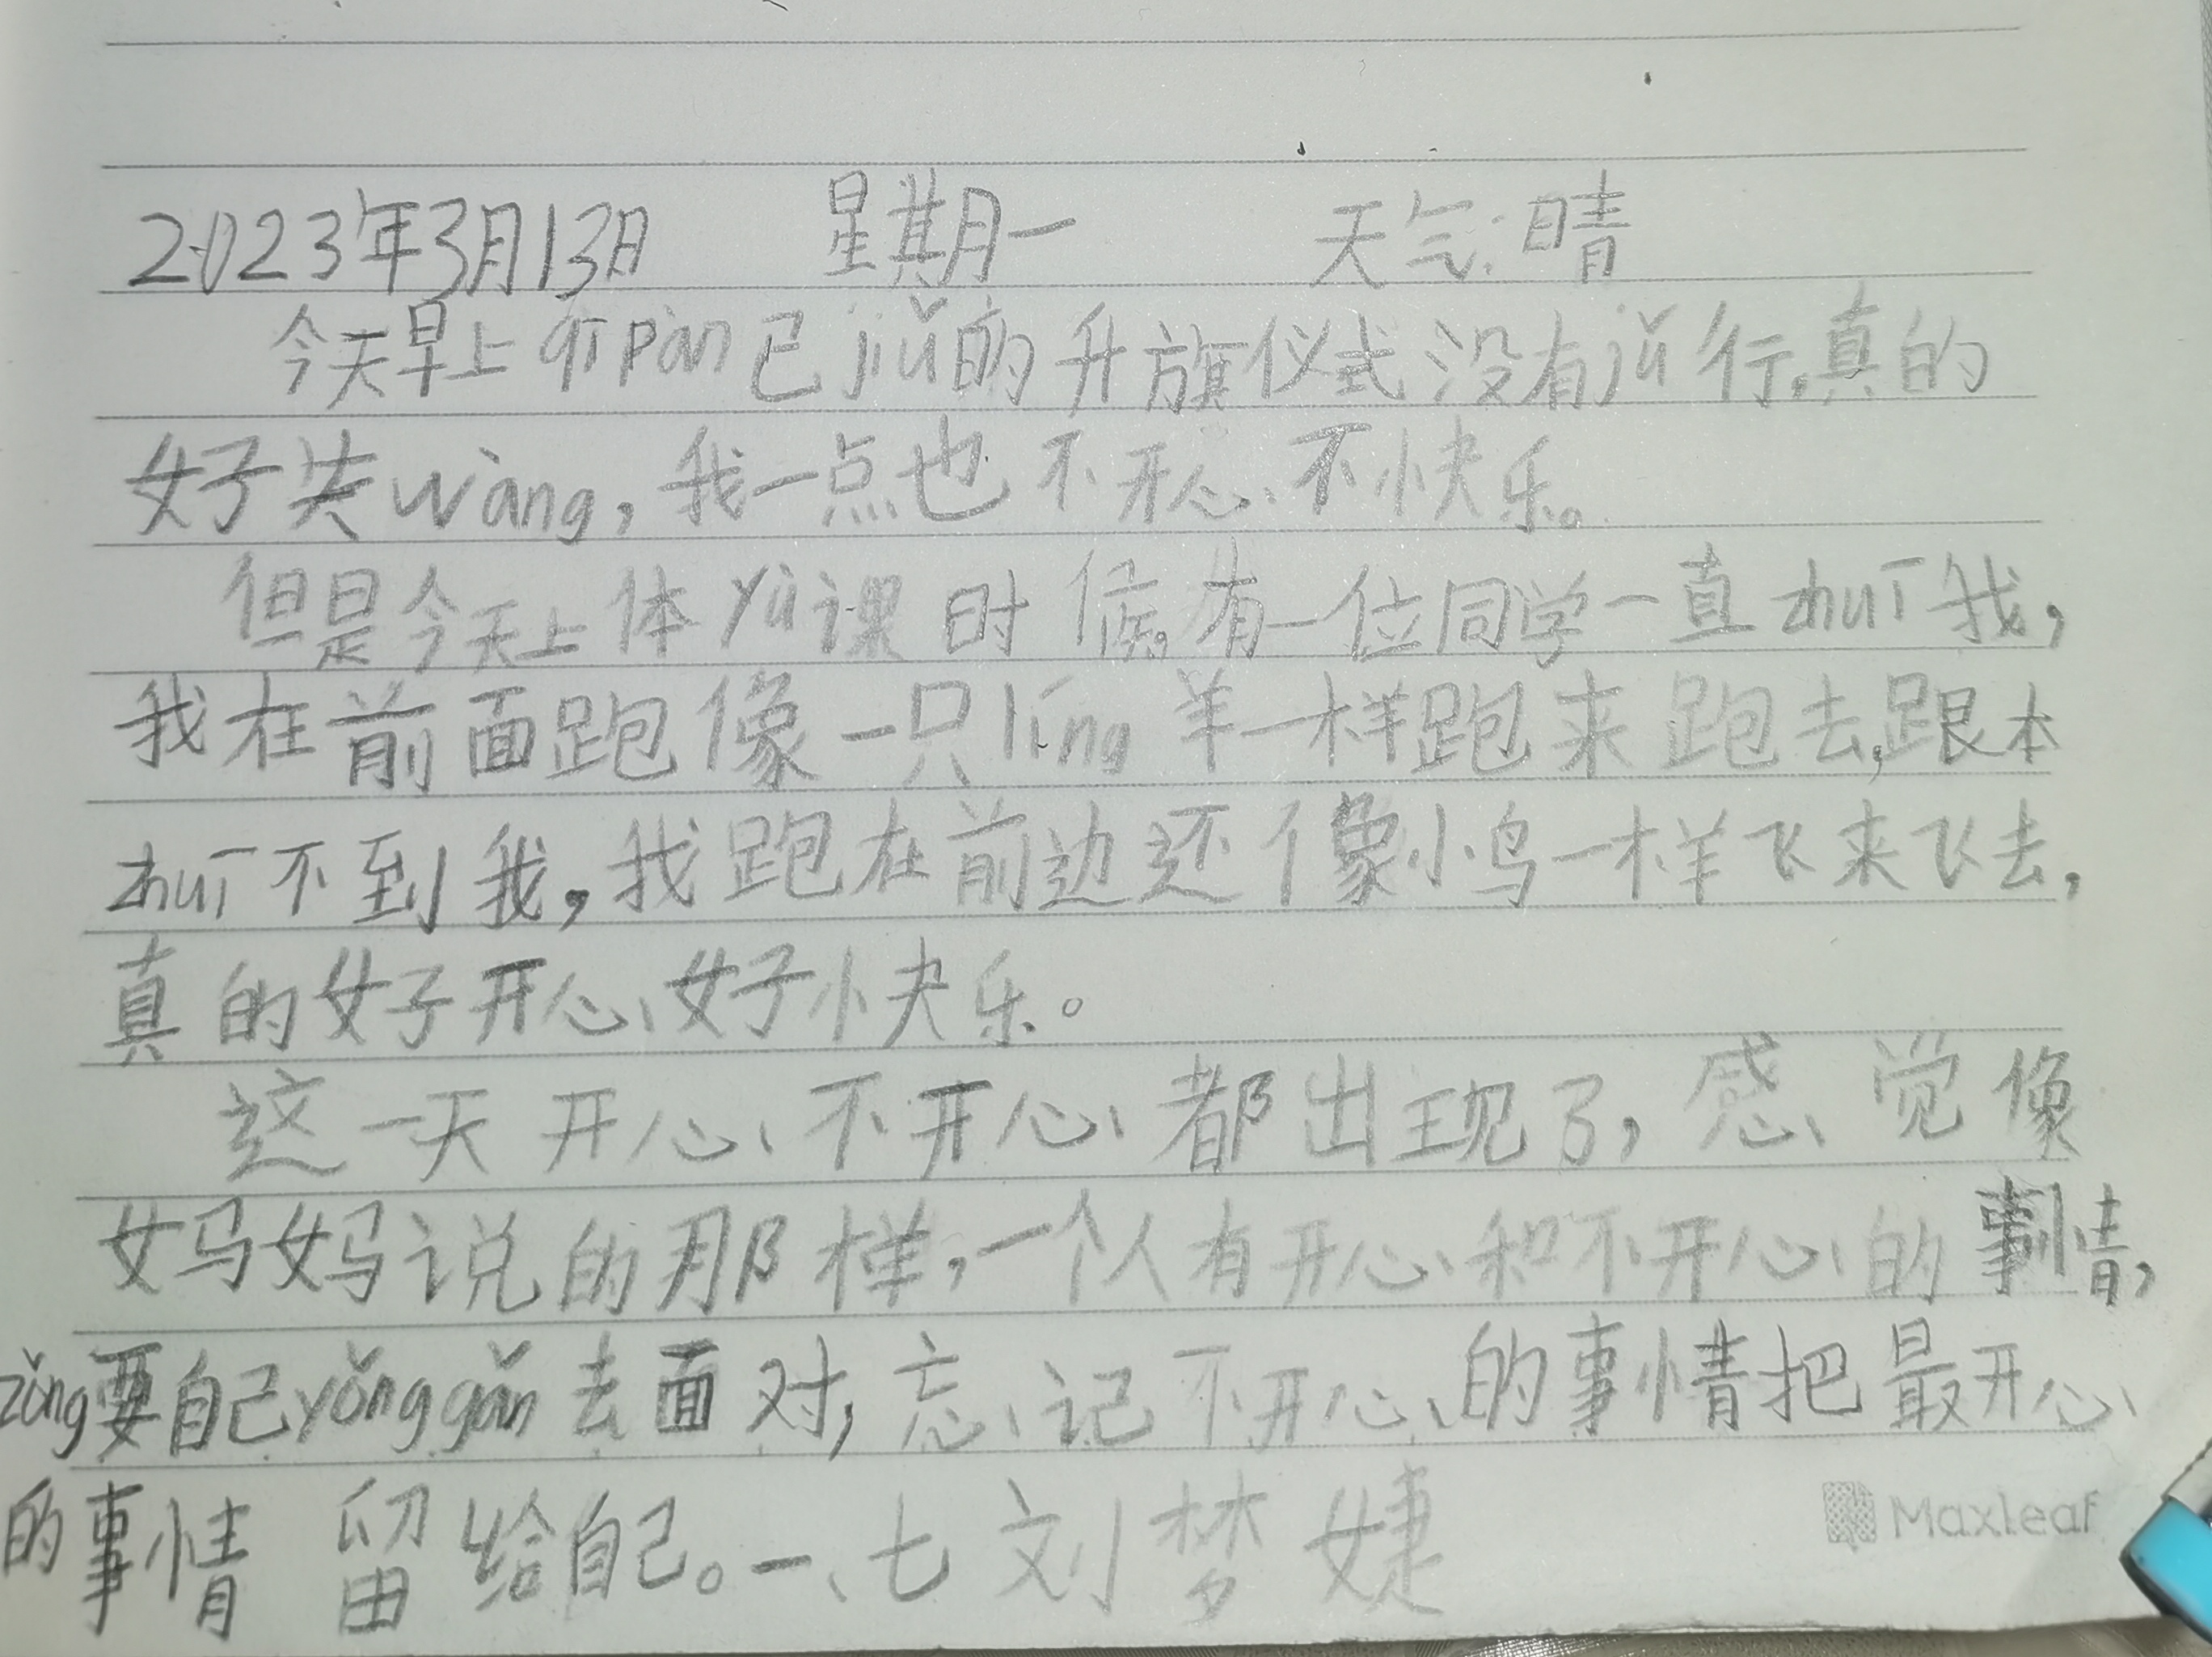 2023年3月13日 星期一 天气:晴
今天早上qīpàn已jiǔ的升旗仪式没有jǔ行,真的
好失wàng,我一点也不开心、不快乐。
但是今天上体yù课时候,有一位同学一直zhuī我,
我在前面跑像一只líng羊一样跑来跑去,跟本
zhuī不到我,我跑在前边还像小鸟一样飞来飞去,
真的好开心、好快乐。
这一天开心、不开心都出现了,感觉像
妈妈说的那样,一个人有开心和不开心的事情,
zǒng要自己yǒnggǎn去面对,忘记不开心的事情把最开心
的事情留给自己。一、七刘梦婕
Maxleaf